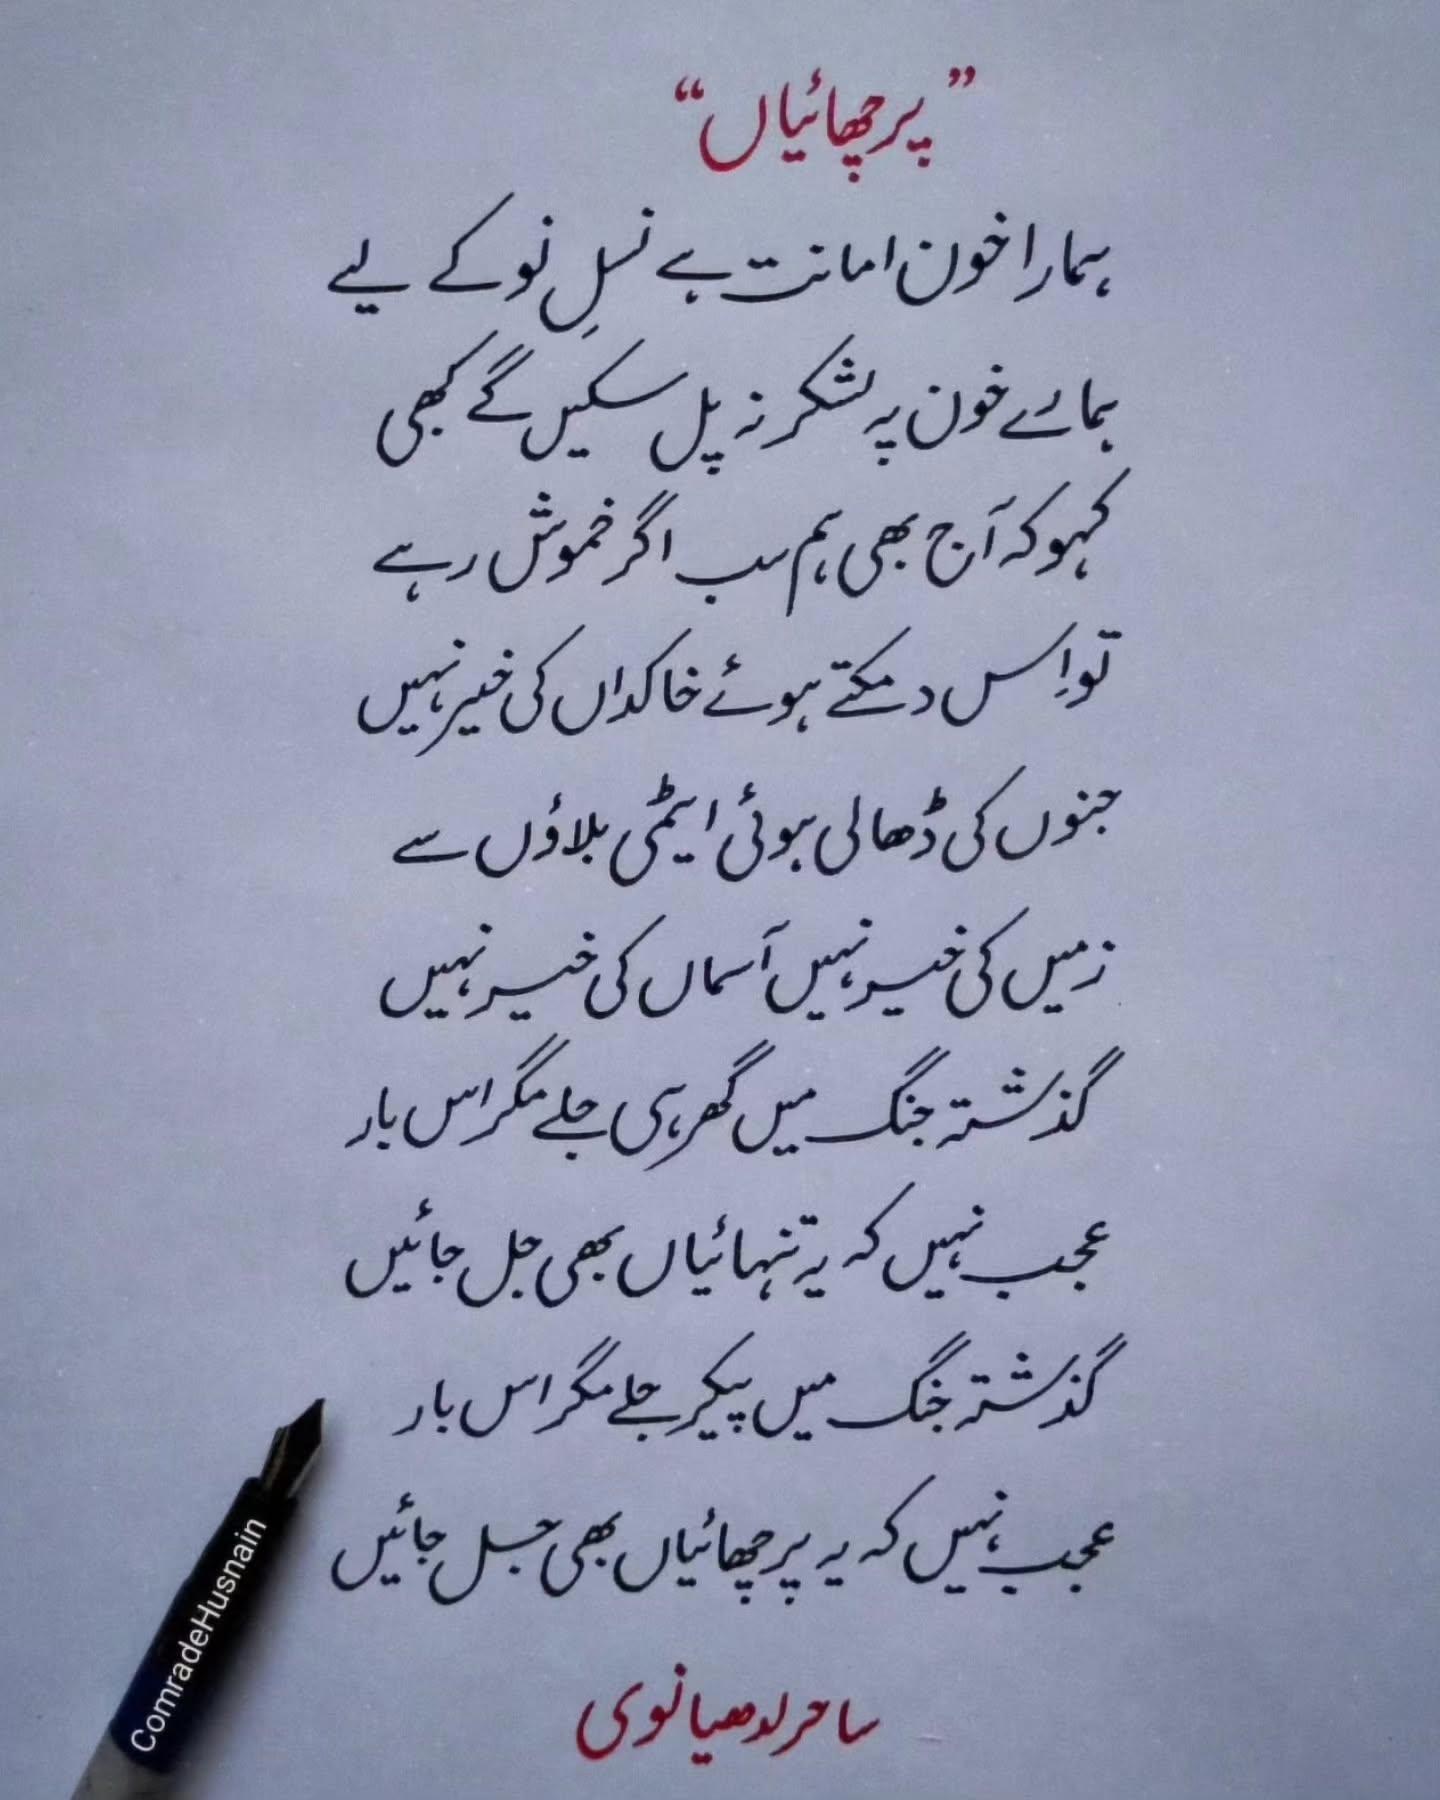 ”پرچھائیاں“
ہمارا خون امانت ہے نسلِ نو کے لیے
ہمارے خون پہ لشکر نہ پل سکیں گے کبھی
کہو کہ آج بھی ہم سب اگر خموش رہے
تو اِس دمکتے ہوئے خاکداں کی خیر نہیں
جنوں کی ڈھالی ہوئی ایٹمی بلاؤں سے
زمیں کی خیر نہیں آسماں کی خیر نہیں
گذشتہ جنگ میں گھر ہی جلے مگر اس بار
عجب نہیں کہ یہ تنہائیاں بھی جل جائیں
گذشتہ جنگ میں پیکر جلے مگر اس بار
عجب نہیں کہ یہ پرچھائیاں بھی جل جائیں
ساحر لدھیانوی
ComradeHusnain